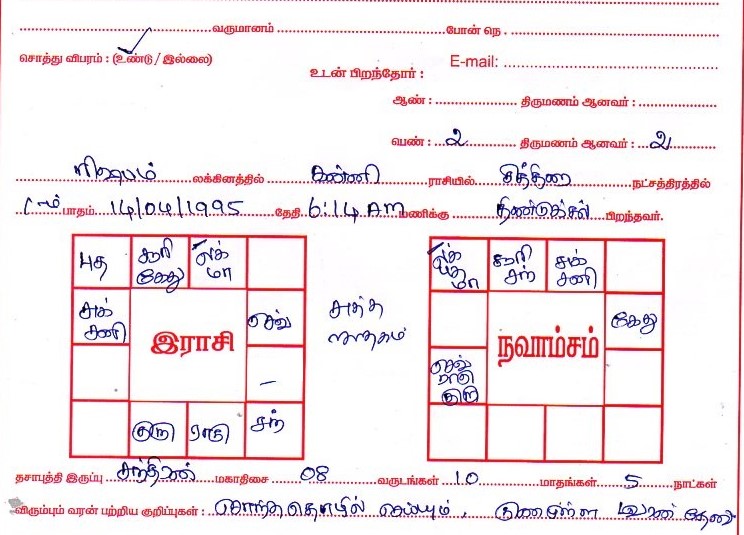 வருமானம் போன் நெ.
சொத்து விபரம் : (உண்டு / இல்லை)
உடன் பிறந்தோர் : E-mail:
ஆண் : திருமணம் ஆனவர் :
பெண் : 2 திருமணம் ஆனவர் : 2
ரிஷபம் லக்கினத்தில் கன்னி ராசியில் சித்திரை நட்சத்திரத்தில்
பாதம் 14/04/1995 தேதி 6:14 AM மணிக்கு திண்டுக்கல் பிறந்தவர்.
புத சூரி லக் லக் சூரி சுக்
கேது மா புத சந் சனி
மா
சுக் செவ் சுத்த கேது
சனி இராசி ஜாதகம் நவாம்சம்
– செவ்
ராகு
குரு
குரு ராகு சந்
தசாபுத்தி இருப்பு சந்திரன் மகாதிசை 08 வருடங்கள் 10 மாதங்கள் 5 நாட்கள்
விரும்பும் வரன் பற்றிய குறிப்புகள் : சொந்த தொழில் செய்யும்,